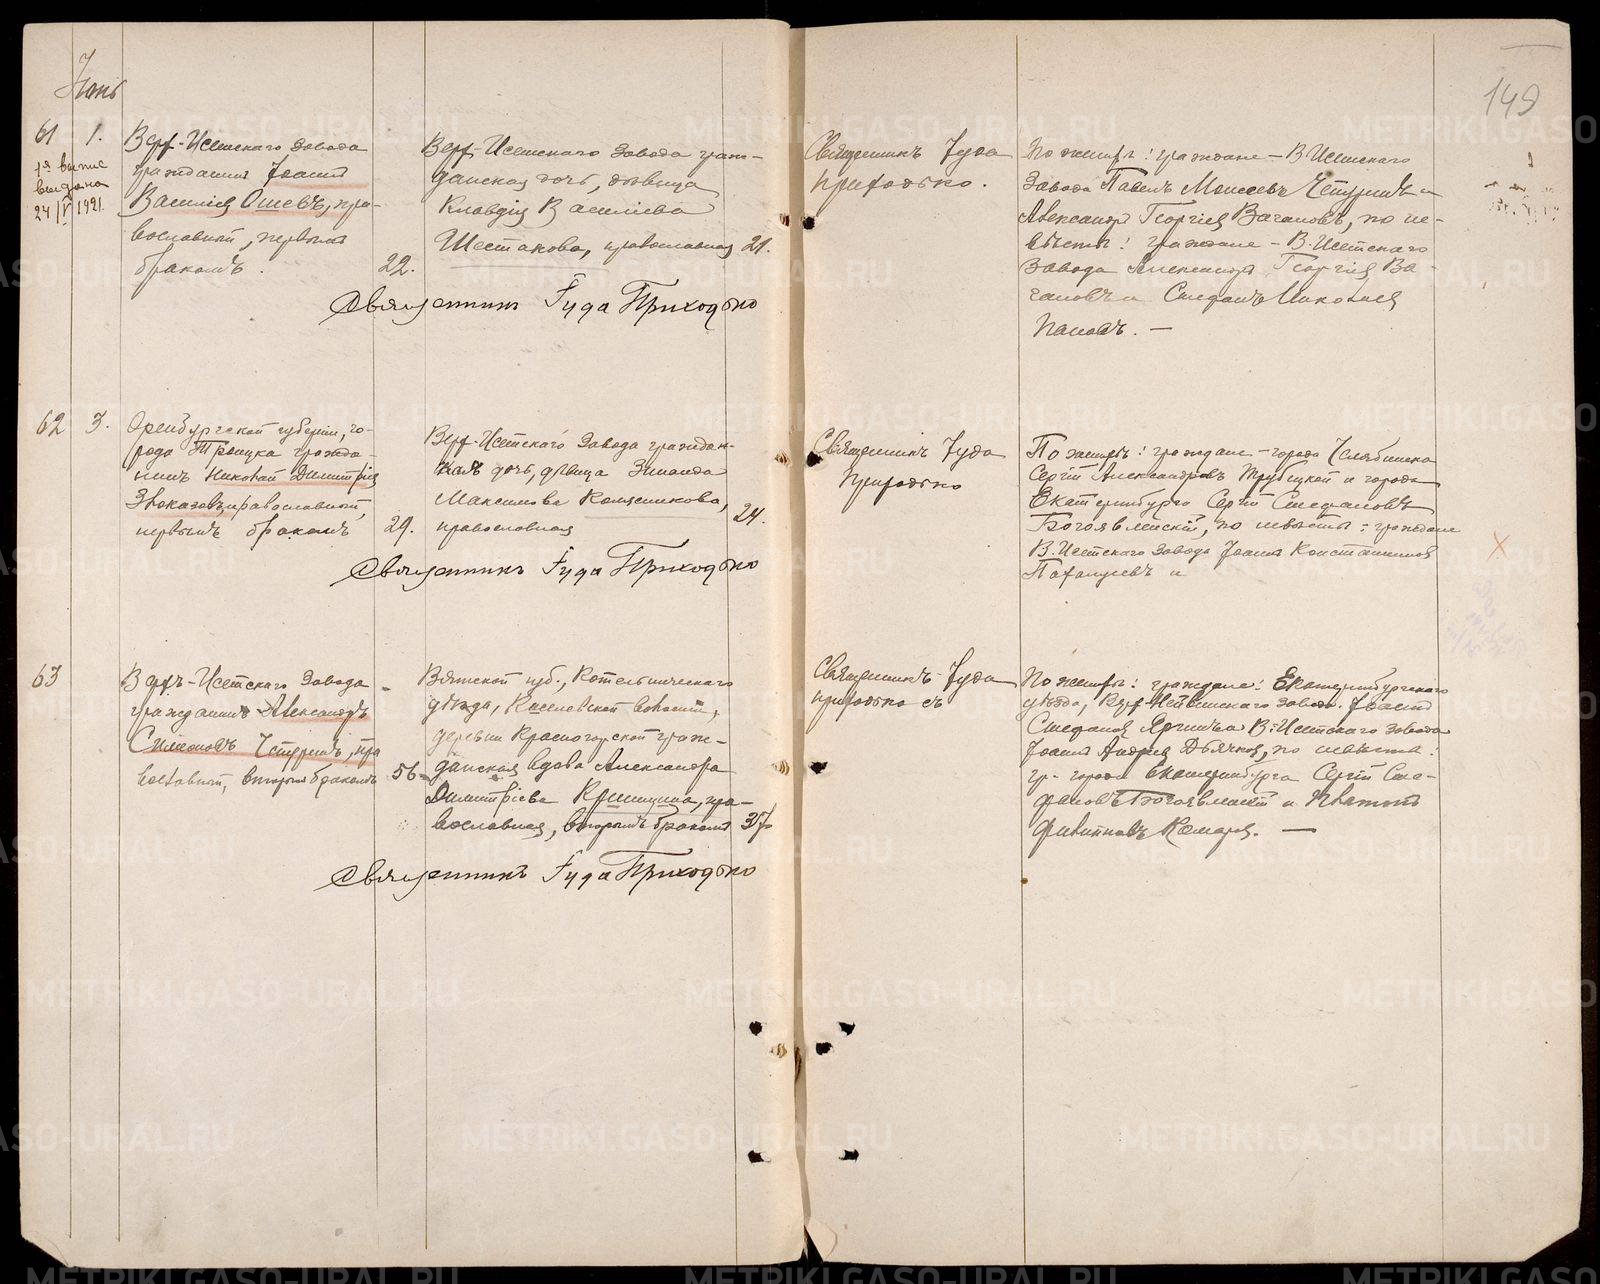 149
61 1.
1я выпис
выдана
24/V 1921.
Верх-Исетскаго завода
гражданинъ Іоаннъ
Василіевъ Ошевъ, пра-
вославный, первымъ
бракомъ.
22.
Верх-Исетскаго завода граж-
данская дочь, дѣвица
Клавдія Василіева
Шестакова, православная 21.
Священникъ Іуда Приходько
Священникъ Іуда
Приходько.
По женихѣ: граждане – В-Исетскаго
завода Павелъ Моисеевъ и
Александръ Георгіевъ Вагановъ, по не-
вѣстѣ: граждане – В-Исетскаго
завода Александръ Георгіевъ Ва-
гановъ и Стефанъ Николаевъ
Поповъ. —
62 3.
Оренбургской губерніи, го-
рода Троицка гражда-
нинъ Николай Димитріев
православный,
первымъ бракомъ
29.
Верх-Исетскаго завода граждан-
дочь, дѣвица Зинаида
Максимова Колясникова,
православная
24.
Священникъ Іуда Приходько
Священникъ Іуда
Приходько
По женихѣ: граждане – города Челябинска
Сергій Александровъ Трубецкой и города
Екатеринбурга Сергій Стефановъ
Богоявленскій, по невѣстѣ: граждане
В. Исетскаго завода Іоаннъ Константиновъ
и
63
Верхъ-Исетскаго завода
гражданинъ Александръ
Симеоновъ пра
вославный, вторымъ бракомъ
56
Вятской губ., Котельническаго
уѣзда, волости,
деревни Красногорской граж-
данская вдова Александра
Димитріева пра-
вославная, вторымъ бракомъ 37
Священникъ Іуда Приходько
Священникъ Іуда
Приходько съ
По женихѣ: граждане: Екатеринбургскаго
уѣзда, Верх-Нейвинскаго завода Іоаннъ
Стефановъ и В-Исетскаго завода
Іоаннъ Андреевъ по невѣстѣ:
гр. города Екатеринбурга Сергій Сте-
фановъ Богоявленскій и
Комаровъ. —
METRIKI.GASO-URAL.RU